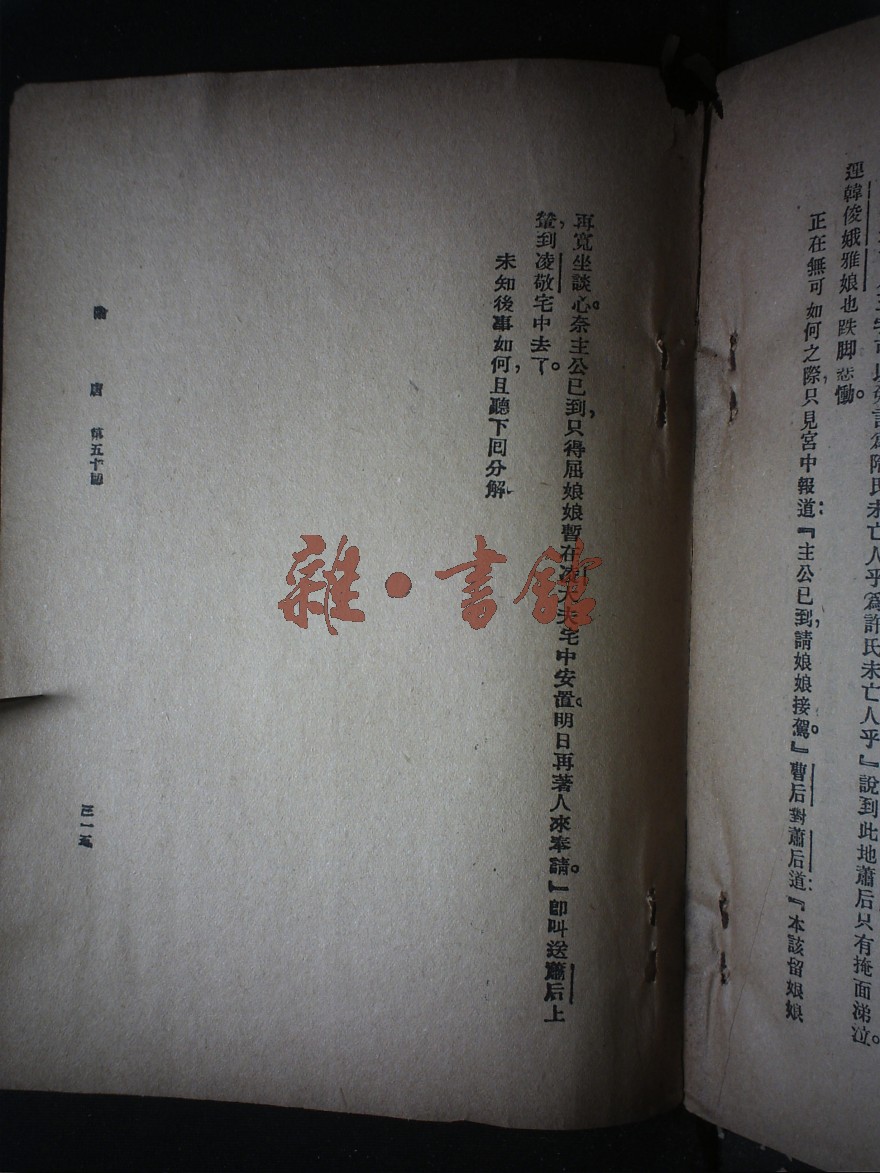 未亡人乎爲許氏未亡人乎』說到此地蕭后只有掩面涕泣。
連韓俊娥雅娘也跌脚悲慟。
正在無可如何之際,只見宮中報道:『主公已到,請娘娘接駕。』曹后對蕭后道:『本該留娘娘
再寬坐談心。奈主公已到,只得屈娘娘暫在凌大夫宅中安置。明日再著人來奉請。』卽叫送蕭后上
輦,到凌敬宅中去了。
未知後事如何,且聽下回分解。
隋唐 第五十回
三一五
雜·書館